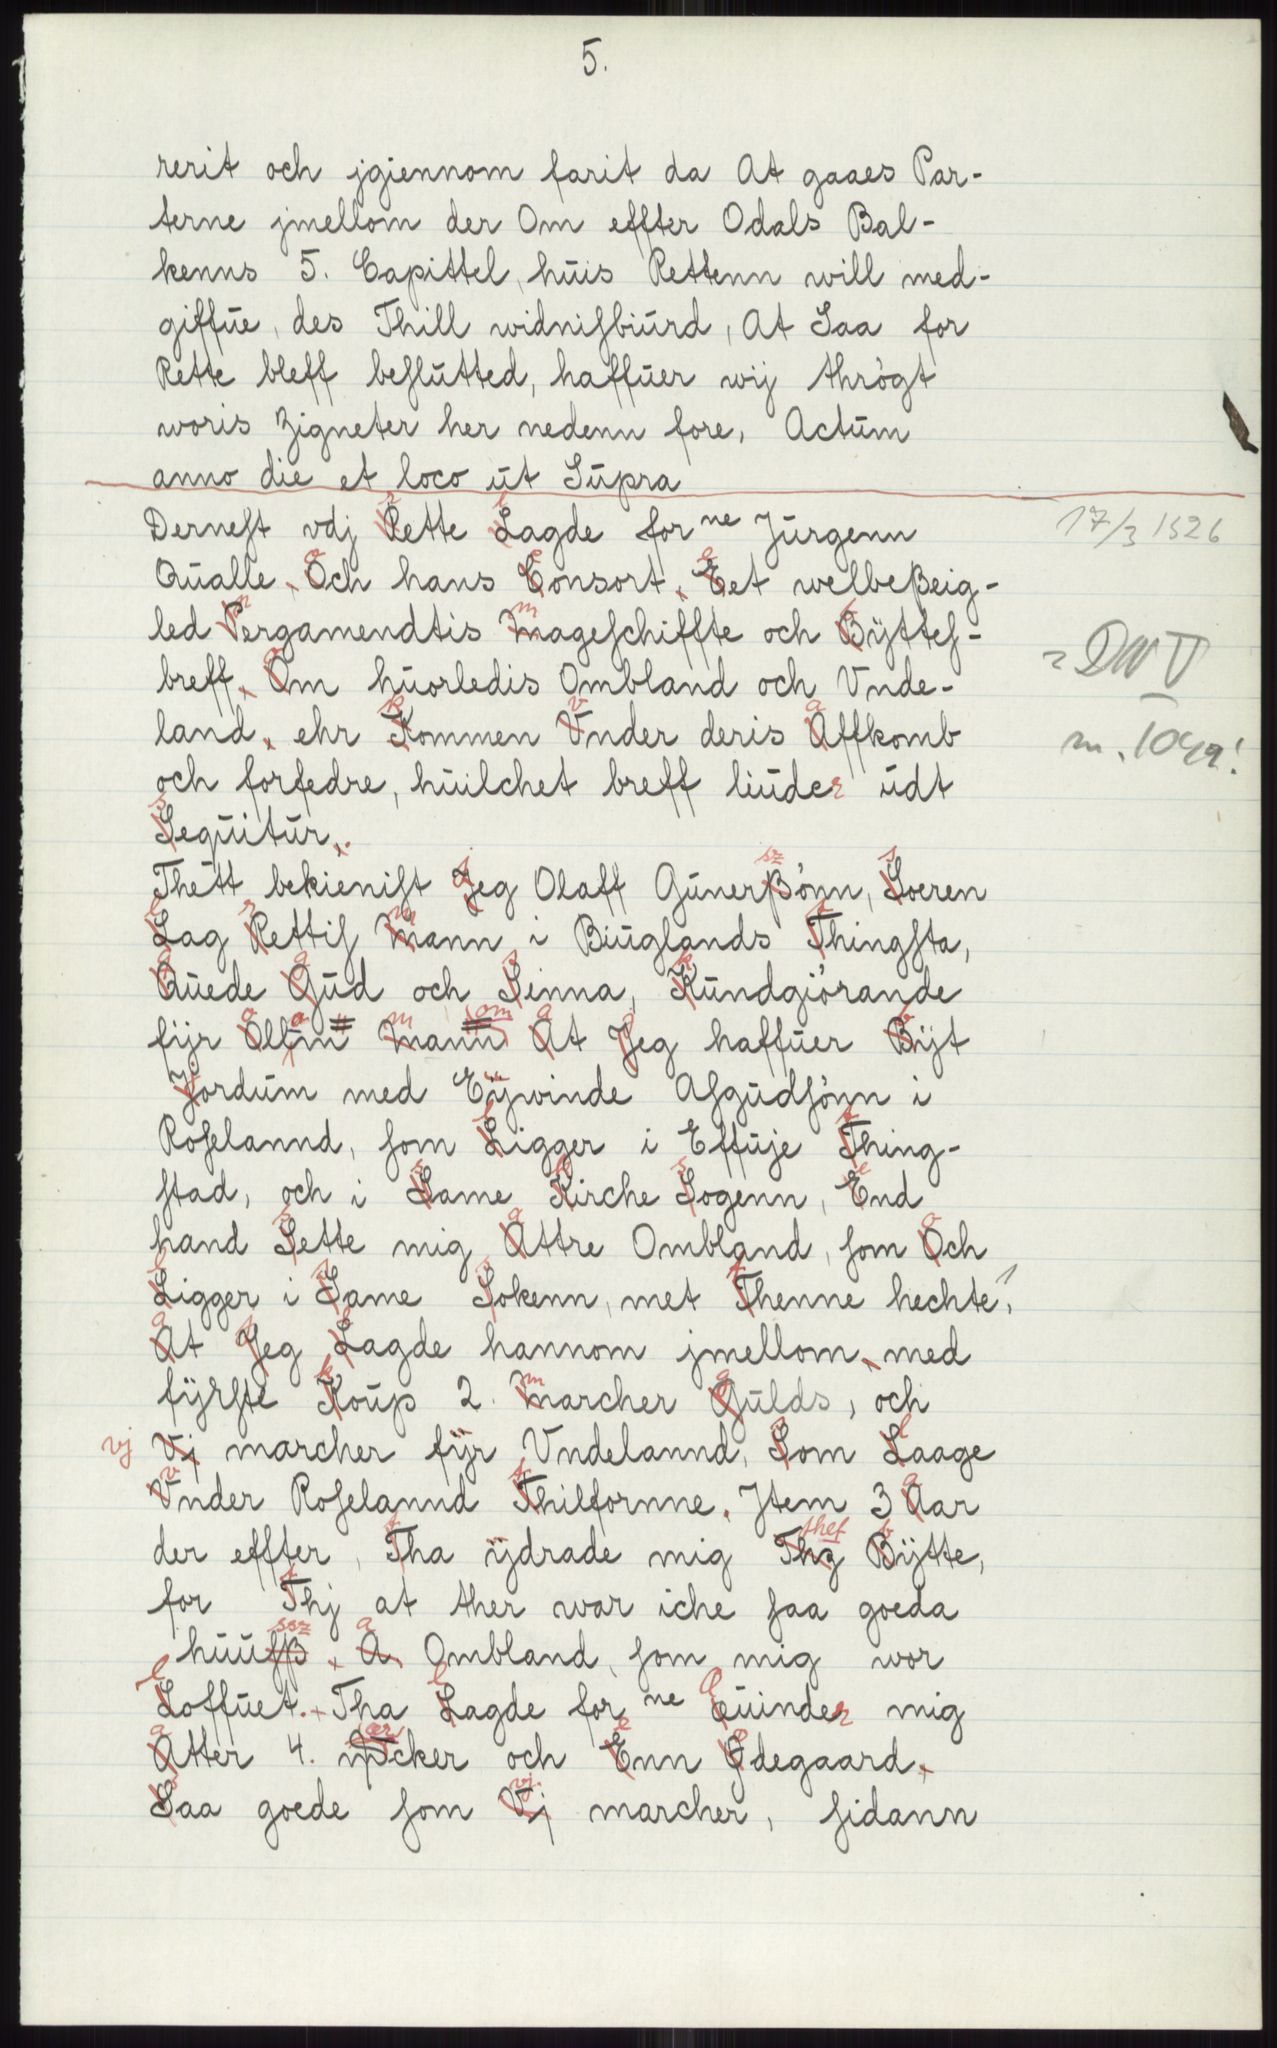 5.
rerit och jgiennom farit da At gaaes Par-
terne jmellom der Om effter Odals Bal-
kenns 5. Capittel, huis Rettenn will med-
giffue, des Thill widnisbiurd, At Saa for
Rette bleff beslutted, haffuer wij thrögt
woris Zigneter her nedenn fore, Actum
anno die et loco ut Supra
17/3 1526
Dernest vdj Rette Lagde for ne Jürgenn
Qualle, Och hans Consort, Eet welbeßeig-
led Pergamendtis Mageschiffte och Byttes-
= DN V
breff, Om huorledis Ombland och Vnde-
land, ehr Kommen Vnder deris Affkomb
n. 1049!
och forfedre, huilchet breff liuder udt
Sequitur,
Thett bekienist Jeg Olaff Gunerßönn, Soeren
Lag Rettis Mann i Biuglands Thingsta,
Quede Gud och Sinna, Kundgiörande
fijr Ollm Mann At Jeg haffuer Bijt
Jordum med Eijwinde Asgudsönn i
Roselannd, som Ligger i Effuje Thing-
stad, och i Same Kirche Sogenn, End
hand Sette mig Attre Ombland, som Och
Ligger i Same Sokenn, met Thenne hechte,
At Jeg Lagde hannom jmellom, med
fijrste Koup 2. Marcher Gulds, och
vj Vj marcher fijr Vndelannd, Som Laage
Vnder Roselannd Thilfornne. Jtem 3 Aar
der effter, Tha ijdrade mig Thz Bijtte,
for Thj at ther war iche saa goeda
huusß, A Ombland, som mig wor
Loffuet. Tha Lagde for ne Euinder mig
Atter 4. cker och Enn Ødegaard,
Saa goede som Vj marcher, sidann